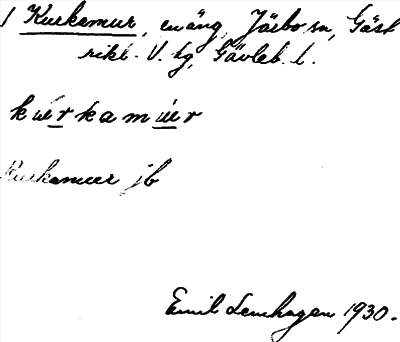 1 Kurkamur, enäng, Järbo sn, Gäst
rikl. V. tg, Gävleb. l.
kúrkamúr
Kurkamur jb
Emil Lenhagen 1930.